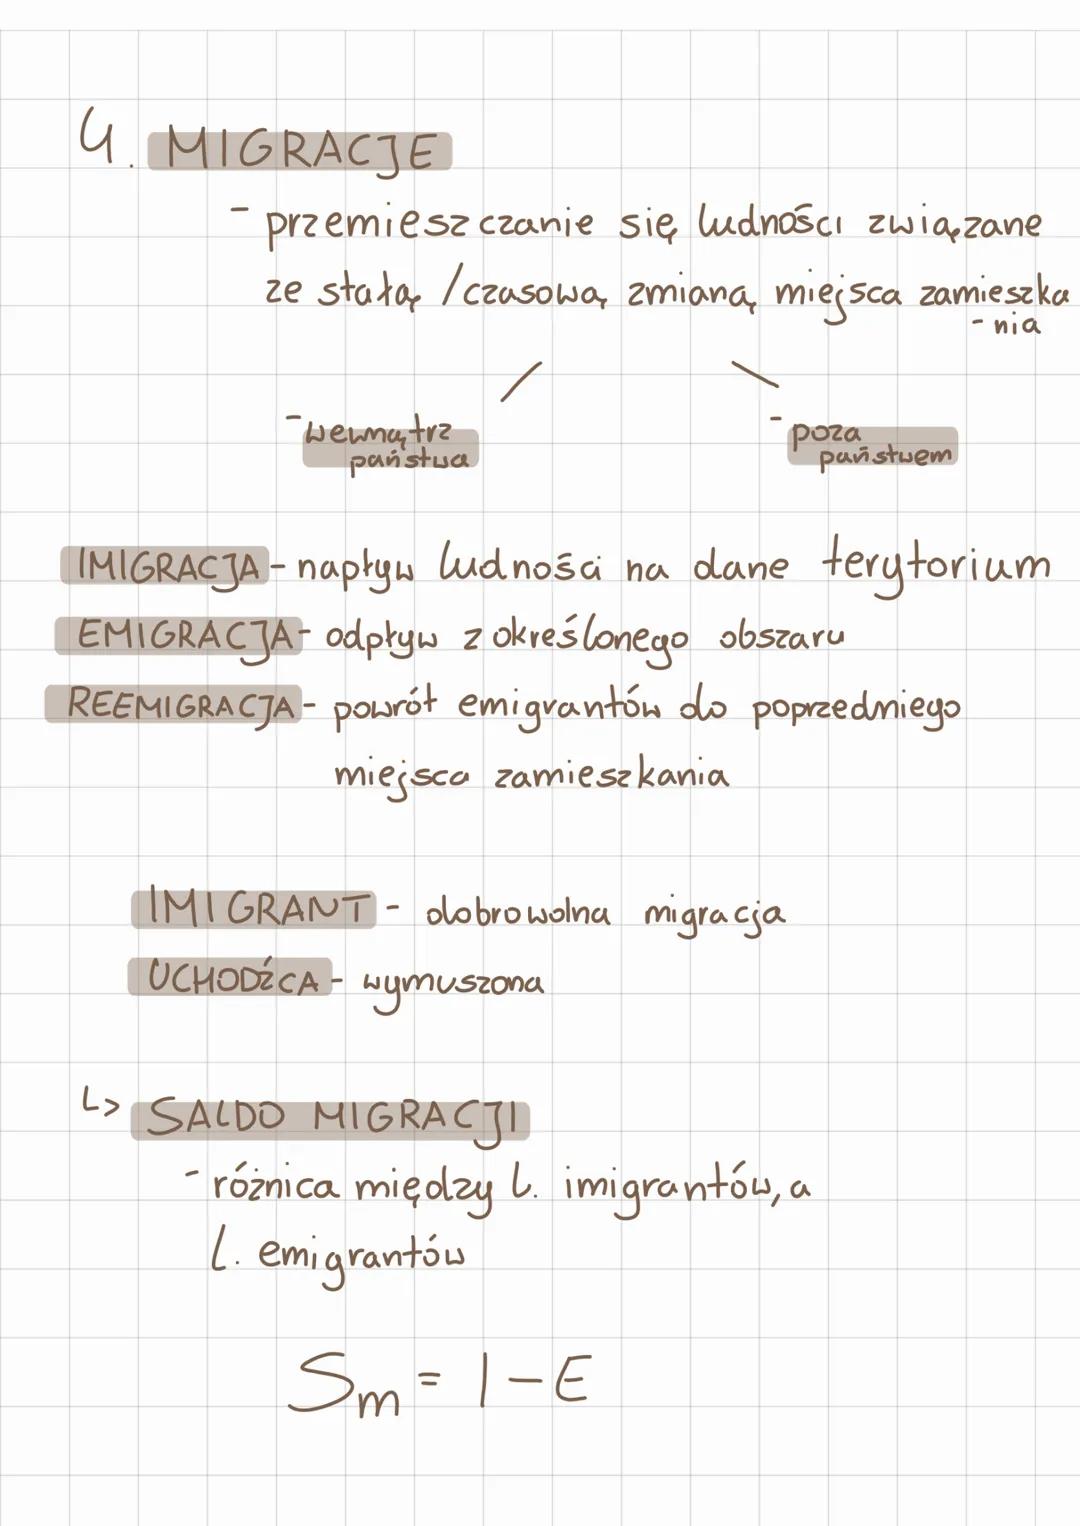 4. MIGRACJE
- przemieszczanie się ludności związane
ze stałą /czasową zmianą miejsca zamieszka
- nia
- wewnątrz
państwa
- poza
państwem
IMIGRACJA - napływ ludności na dane terytorium
EMIGRACJA - odpływ z określonego obszaru
REEMIGRACJA - powrót emigrantów do poprzedniego
miejsca zamieszkania
IMIGRANT - dobrowolna migracja
UCHODŹCA - wymuszona
↳ SALDO MIGRACJI
- różnica między l. imigrantów, a
l. emigrantów
Sm = I - E